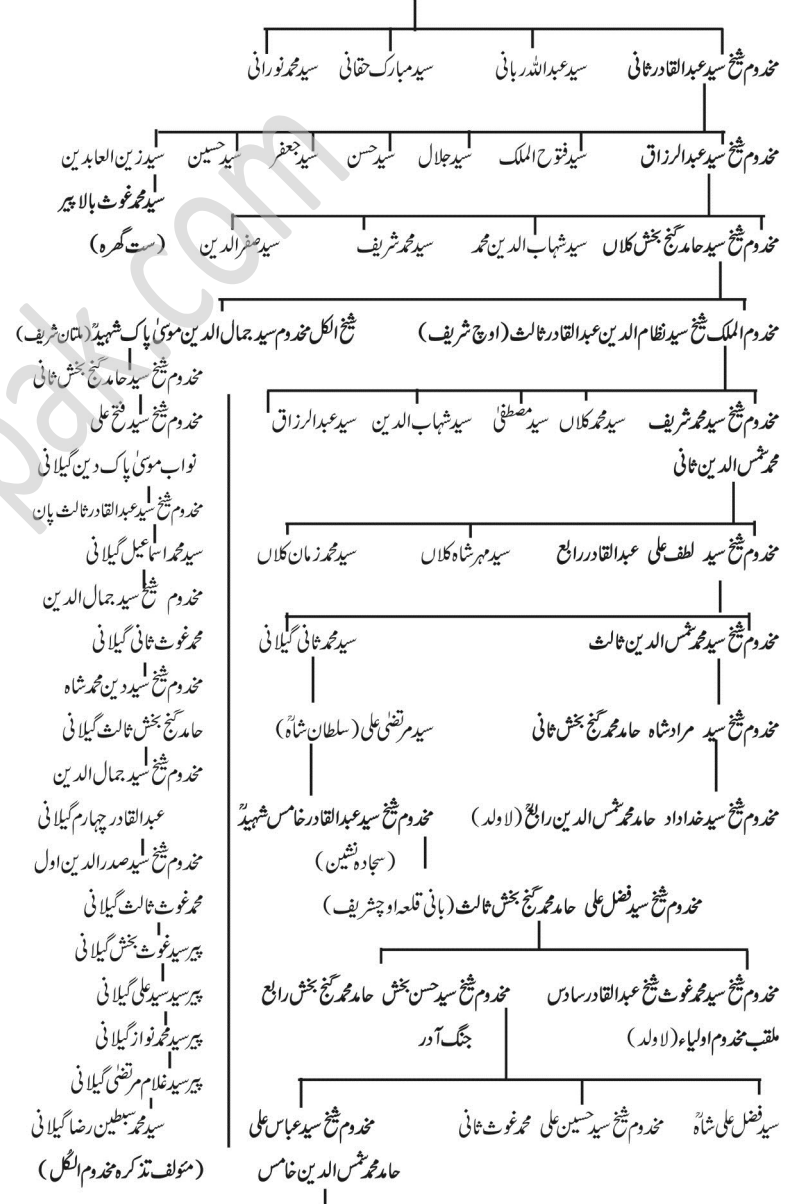 مخدوم شیخ سید عبدالقادر ثانی سید عبداللہ ربانی سید مبارک حقانی سید محمد نورانی
مخدوم شیخ سید عبدالرزاق سید فتوح الملک سید جلال سید حسن سید جعفر سید حسین سید زین العابدین
سید محمد غوث بالا پیر
مخدوم شیخ سید حامد گنج بخش کلاں سید شہاب الدین محمد سید محمد شریف سید صفر الدین (ست گھرہ)
مخدوم الملک شیخ سید نظام الدین عبدالقادر ثالث (اوچ شریف) شیخ الکل مخدوم سید جمال الدین موسیٰ پاک شہیدؒ (ملتان شریف)
مخدوم شیخ سید محمد شریف سید محمد کلاں سید مصطفیٰ سید شہاب الدین سید عبدالرزاق
محمد شمس الدین ثانی
مخدوم شیخ سید لطف علی عبدالقادر رابع سید مہر شاہ کلاں سید محمد زمان کلاں
مخدوم شیخ سید محمد شمس الدین ثالث سید محمد ثانی گیلانی
مخدوم شیخ سید مراد شاہ حامد محمد گنج بخش ثانی سید مرتضیٰ علی (سلطان شاہؒ)
مخدوم شیخ سید خداداد حامد محمد شمس الدین رابعؒ (لا ولد) مخدوم شیخ سید عبدالقادر خامس شہیدؒ
(سجادہ نشین)
مخدوم شیخ سید فضل علی حامد محمد گنج بخش ثالث (بانی قلعہ اوچشریف)
مخدوم شیخ سید محمد غوث شیخ عبدالقادر سادس مخدوم شیخ سید حسن بخش حامد محمد گنج بخش رابع
ملقب مخدوم اولیاء (لا ولد) جنگ آدر
سید فضل علی شاہؒ مخدوم شیخ سید حسین علی محمد غوث ثانی مخدوم شیخ سید عباس علی
حامد محمد شمس الدین خامس
مخدوم شیخ سید حامد گنج بخش ثانی
مخدوم شیخ سید فتح علی
نواب موسیٰ پاک دین گیلانی
مخدوم شیخ سید عبدالقادر ثالث پان
سید محمد اسماعیل گیلانی
مخدوم شیخ سید جمال الدین
محمد غوث ثانی گیلانی
مخدوم شیخ سید دین محمد شاہ
حامد گنج بخش ثالث گیلانی
مخدوم شیخ سید جمال الدین
عبدالقادر چہارم گیلانی
مخدوم شیخ سید صدر الدین اول
محمد غوث ثالث گیلانی
پیر سید غوث بخش گیلانی
پیر سید سید علی گیلانی
پیر سید محمد نواز گیلانی
پیر سید غلام مرتضیٰ گیلانی
سید محمد سبطین رضا گیلانی
(مئولف تذکرہ مخدوم الکُل)
pak.com